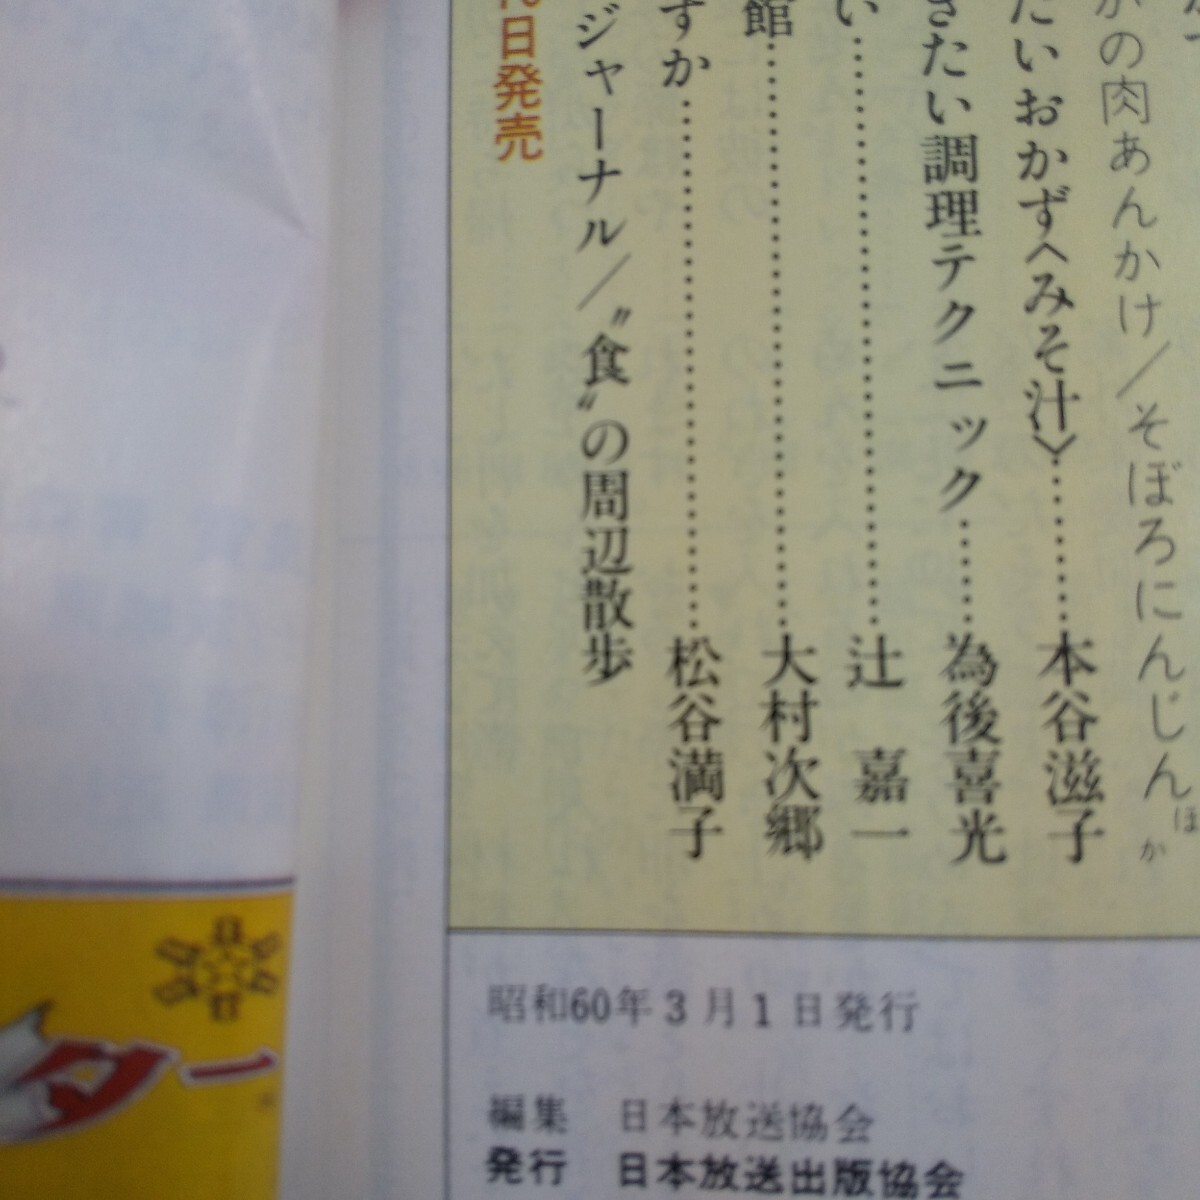 の肉あんかけ/そぼろにんじんほか
たいおかず〈みそ汁〉……本谷滋子
きたい調理テクニック……為後喜光
い……辻 嘉一
館……大村次郷
すか……松谷満子
ジャーナル/〝食〟の周辺散歩
日発売
昭和60年3月1日発行
編集 日本放送協会
発行 日本放送出版協会
ター